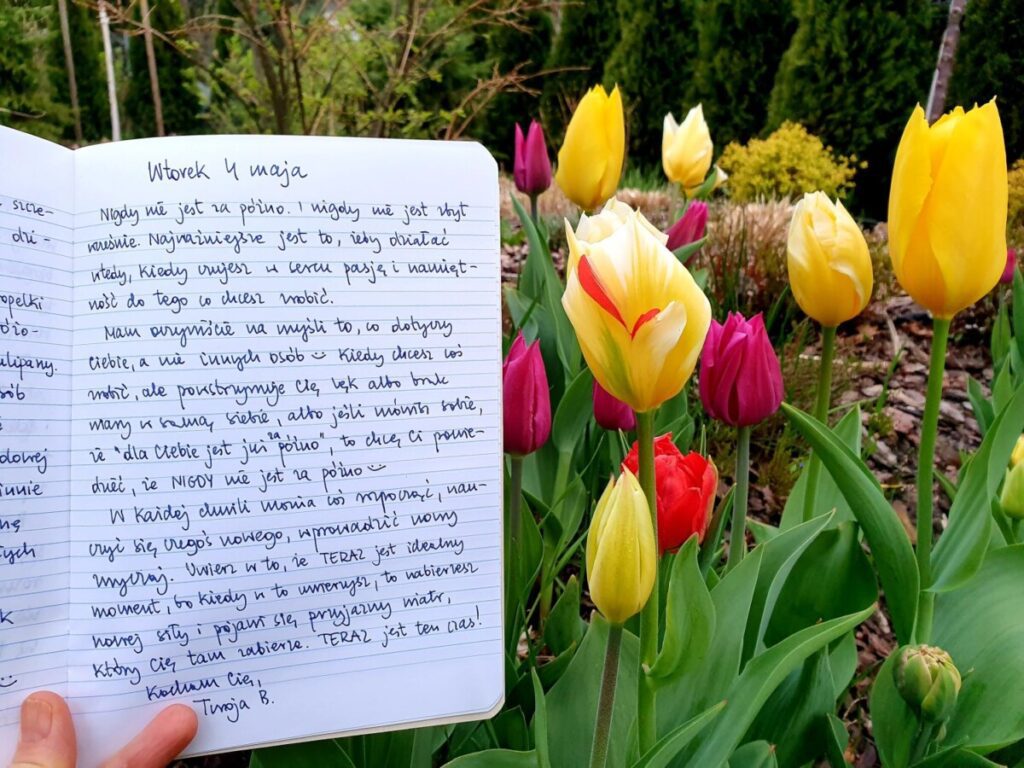 szcze-
dzi-
opelki
óźo-
ulipany.
sób
dowej
innie
nę
tych
k
Wtorek 4 maja
Nigdy nie jest za późno. I nigdy nie jest zbyt
wcześnie. Najważniejsze jest to, żeby działać
wtedy, kiedy czujesz w sercu pasję i namięt-
ność do tego co chcesz zrobić.
Mam oczywiście na myśli to, co dotyczy
Ciebie, a nie innych osób ☺ Kiedy chcesz coś
zrobić, ale powstrzymuje Cię lęk albo brak
wiary w samą siebie, albo jeśli mówisz sobie,
że "dla Ciebie jest już za późno", to chcę Ci powie-
dzieć, że NIGDY nie jest za późno ☺
W każdej chwili można coś rozpocząć, nau-
czyć się czegoś nowego, wprowadzić nowy
zwyczaj. Uwierz w to, że TERAZ jest idealny
moment, bo kiedy w to uwierzysz, to nabierzesz
nowej siły i pojawi się przyjazny wiatr,
który Cię tam zabierze. TERAZ jest ten czas!
Kocham Cię,
Twoja B.